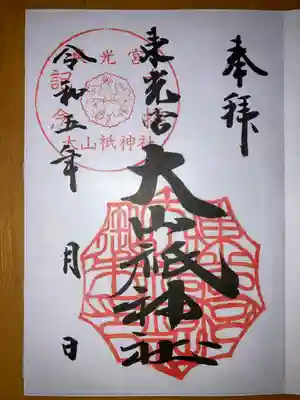 奉拝
東光宮
大山祇神社
令和五年 月 日
光宮
記念
大山祇神社